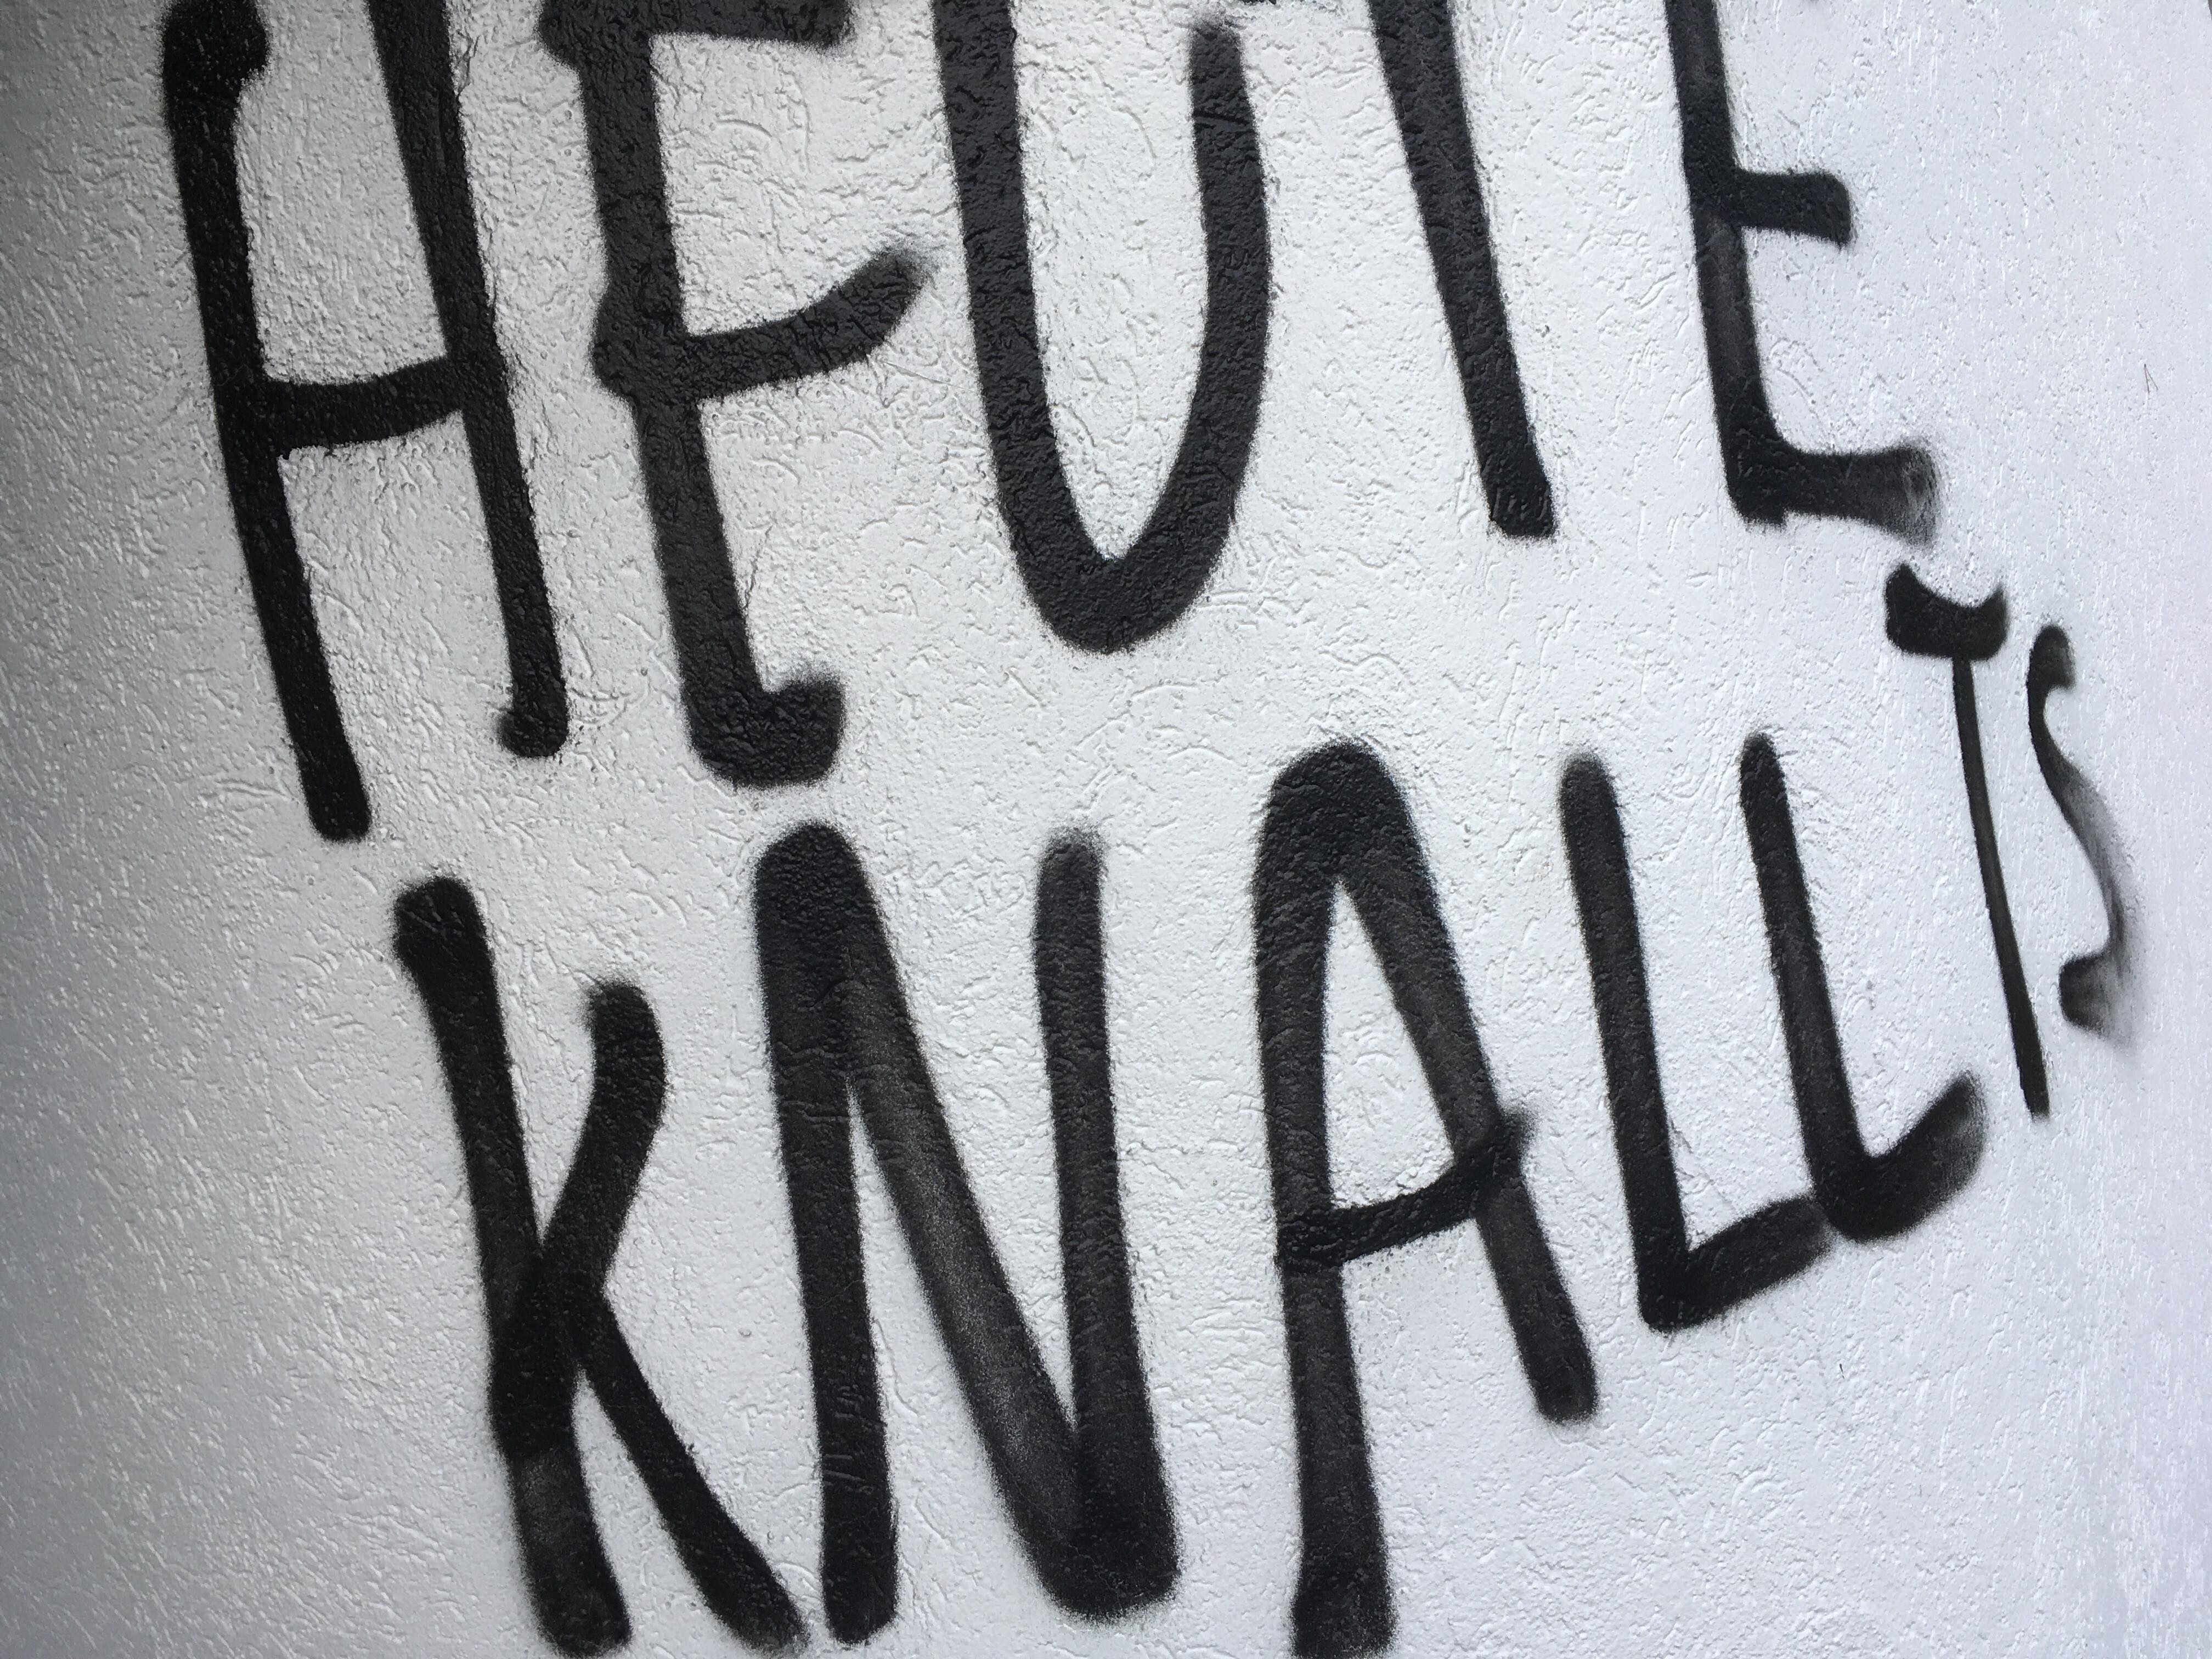 HEUTE
KNALLTS